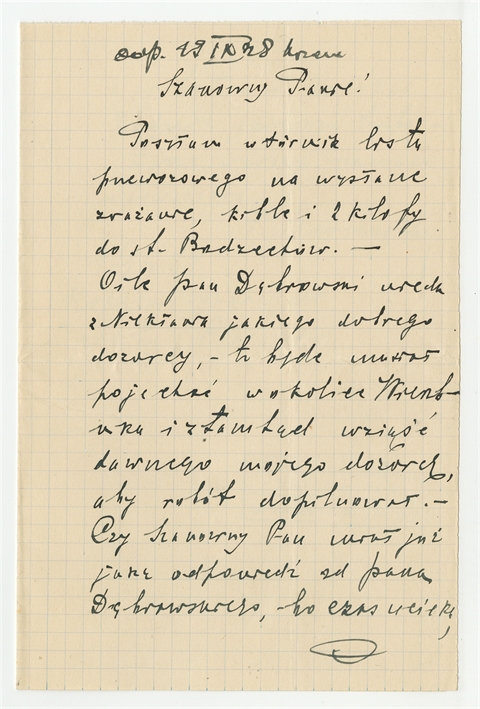 odp. 19 IX 28
Szanowny Panie!
Posyłam wtórnik listu
przewozowego na wysłane
kible i 2 kilofy
do st. Bodzechów. —
Ośle pan Dąbrowski
z Niekłania jakiego dobrego
dozorcy, – to będę musiał
pojechać w okolice Wierzb-
nika i ztamtąd wziąść
dawnego mojego dozorcę,
aby robót dopilnował. –
Czy Szanowny Pan miał już
jaką odpowiedź od pana
Dąbrowskiego, – bo czas ucieka,